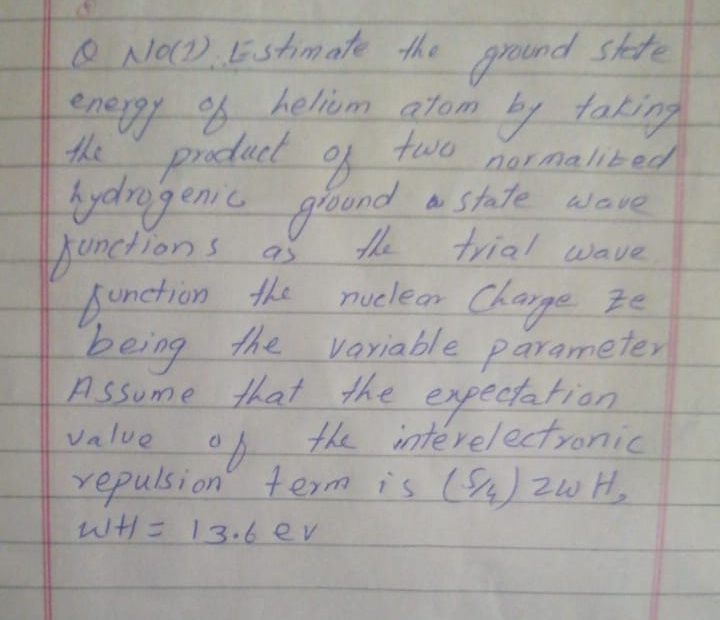 Q No(1). Estimate the ground state
energy of helium atom by taking
the product of two normalized
hydrogenic ground state wave
functions as the trial wave
function the nuclear Charge Ze
being the variable parameter
Assume that the expectation
value of the interelectronic
repulsion term is (5/4) ZWH,
WH = 13.6 ev